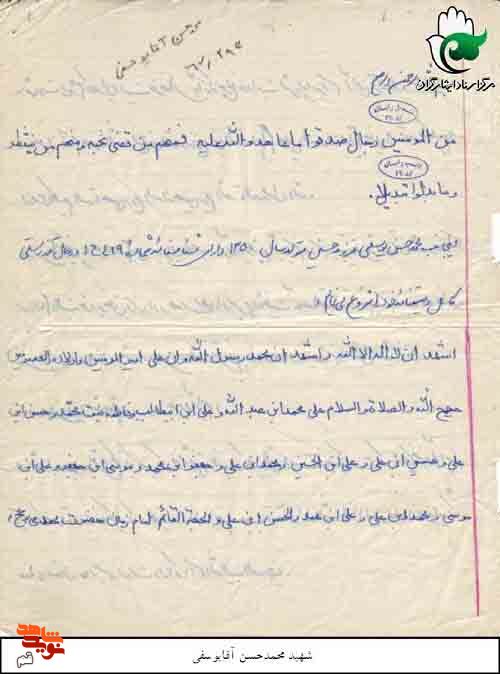 مرکز اسناد ایثارگران
محمدحسن آقایوسفی
بسم الله الرحمن الرحیم
من المومنین رجال صدقوا ما عاهدوالله علیه فمنهم من قضی نحبه و منهم من ینتظر
و ما بدلوا تبدیلا.
اینجانب محمدحسن یوسفی فرزند حسن متولد سال ۱۳۵۰ دارای شناسنامه شماره
کامل وصیتنامه خود را شروع می‌نمایم
اشهد ان لا اله الا الله و اشهد ان محمد رسول الله و ان علی امیرالمومنین و اولاده المعصومین
حجج الله و الصلاة والسلام علی محمد ابن عبدالله و علی ابن ابیطالب و فاطمه بنت محمد و حسن ابن
علی و حسین ابن علی و علی ابن الحسین و محمد ابن علی و جعفر ابن محمد و موسی ابن جعفر و علی ابن
موسی و محمد ابن علی و علی ابن محمد و الحسن ابن علی و الحجة القائم امام زمان حضرت مهدی (عج)
شهید محمدحسن آقایوسفی
نوید شاهد
قم